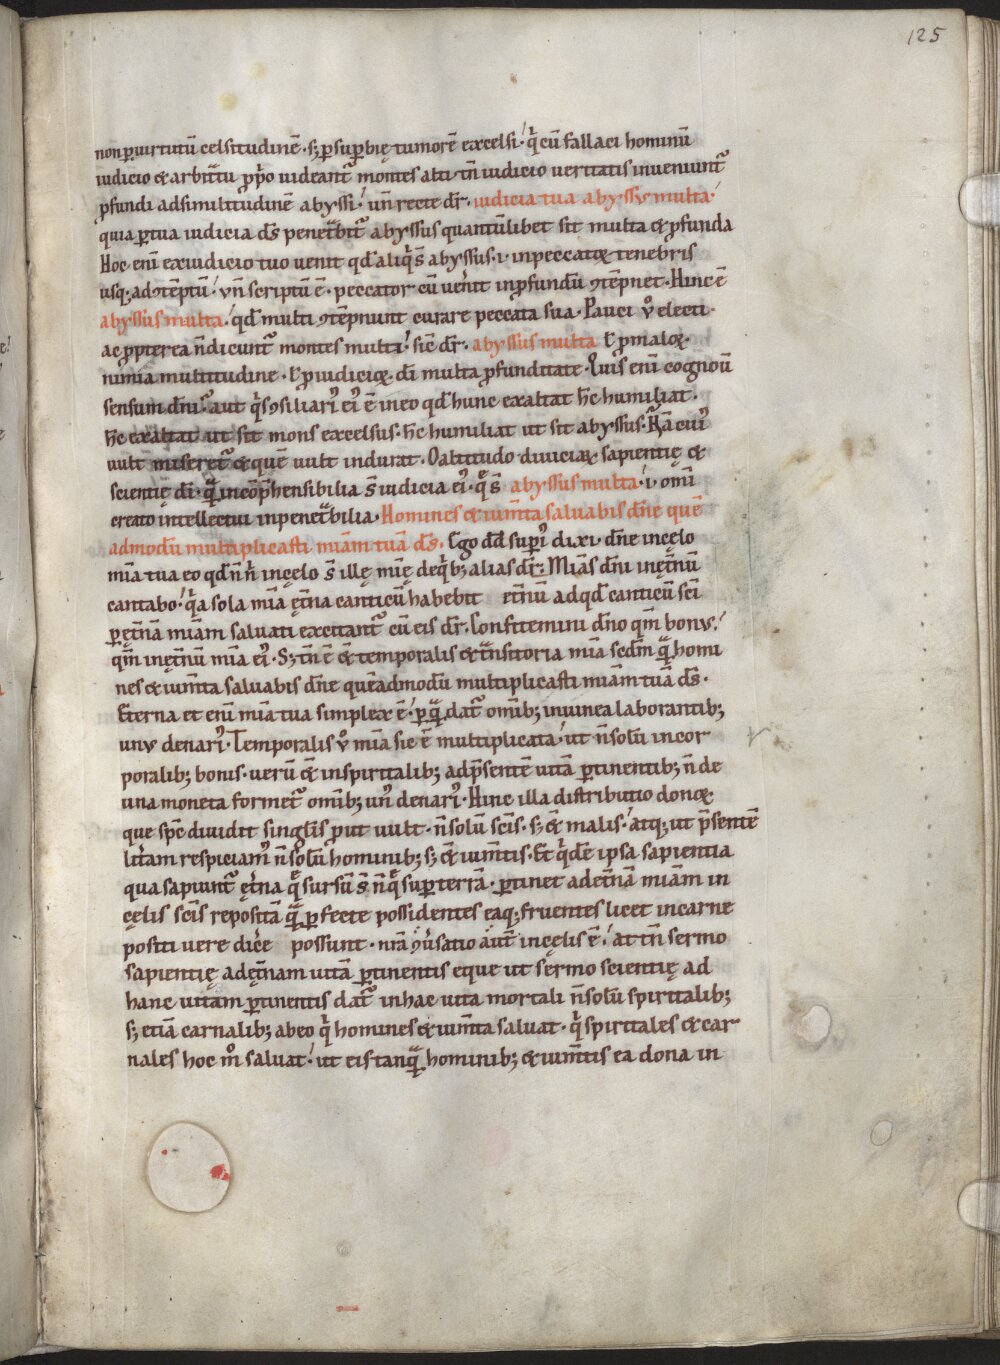 125
non p̱ uirtutū celsitudinē · sꝫ p̱ suꝑbię tumorē excelsi · q̇ cū fallaci hominū
iudicio & arbitͣtu ꝓp̍o uideantᷣ montes alti tn̄ iudicio ueritatis inveniuntᷣ
ꝓfundi ad similitudinē abyssi · uñ recte dr̄ · iudicia tua abyssus multa ·
quia ꝑ tua iudicia d̄s penetͣbitᷣ abyssus quantūlibet sit multa & ꝓfunda
Hoc enī ex iudicio tuo uenit qđ aliq̇ s̄ abyssus · i · in peccatoꝝ tenebris
usqꝫ ad ꝯtēptū · vñ scriptū ē · peccator cū uen̍it in ꝓfundū ꝯtēpnet · Hinc ē
abyssus multa · qđ multi ꝯtēpnunt curare peccata sua · Pauci v̊ electi ·
ac ꝓpterea ñ dicuntᷣ montes multi · sic̄ dr̄ · abyssus multa ł p̱ maloꝝ ·
nimia multitudine · ł p̱ iudicioꝝ · dī multa ꝓfunditate · Quis enī cognoū
sensum dn̄i · aut q̇s ꝯsiliari᾽ ei᾽ ē in eo qđ hunc exaltat h̄c humiliat ·
h̄c exaltat ut sit mons excelsus · h̄c humiliat ut sit abyssus · Nā cui᾽
uult miseretᷣ & quē uult indurat · O altitudo diuiciaꝝ sapientię &
scientię dī · qͣ̄ incōp̄hensibilia s̄ iudicia ei᾽ · q̄ s̄ abyssus multa · i · omī
creato intellectui inpenetͣbilia · Homines & ium̄ta saluabis dn̄e quē
admodū multiplicasti miām tuā d̄s · Ego dđ supi᾽ dixi · dn̄e in cęlo
mīa tua eo qđ ñ n̍ in cęlo s̄ illę mię de q̇bꝫ alias dr̄ · Miās dn̄i in ęt̄nū
cantabo · q̇a sola miā ęt̄na canticū habebit et̄nū ad qđ canticū scī
p̱ ęt̄nā miām saluati excitantᷣ cū eis dr̄ · Confitemini dn̄o qm̄ bonus ·
qm̄ in ęt̄nū mīa ei᾽ · Sꝫ tn̄ ē & temporalis & tͣnsitoria mīa scdm̄ qͣ̄ homi
nes & ium̄ta saluabis dn̄e quēadmodū multiplicasti miām tuā d̄s ·
Eterna et enī mīa tua simplex ē · p̱ qͣ̄ datᷣ omībꝫ in uinea laborantibꝫ
unus denari᾽ · Temporalis v̊ mīa sic ē multiplicata · ut ñ solū in cor
poralibꝫ bonis · uerū &̄ in spiritalibꝫ ad p̄sentē uitā p̱tinentibꝫ ñ de
una moneta formetᷣ omībꝫ un᾽ denari᾽ · Hinc illa distributio donoꝝ ·
que spc̄ diuidit singlīs ꝓut uult · ñ solū scīs · sꝫ &̄ malis · atqꝫ ut p̄sentē
lit̄am respiciam᾽ ñ solū hominibꝫ sꝫ &̄ ium̄tis · Et q̇dē ipsa sapientia
qua sapiuntᷣ ęt̄na q̄ sursū s̄ ñ q̄ sup̱ terrā · p̱tinet ad et̄nā miām in
cęlis scīs repositā qͣ̄ p̱fecte possidentes eaqꝫ fruentes licet in carne
positi uere dic̄e possunt · nr̄a ꝯu̍satio aut̄ in cęlis ē · at tn̄ sermo
sapientię ad ęt̄nam uitā p̱tinentis eque ut sermo scientię ad
hanc uitam p̱tinentis datᷣ in hac uita mortali ñ solū spiritalibꝫ
sꝫ etiā carnalibꝫ ab eo q̇ homines & ium̄ta saluat · q̇ spiritales & car
nales hoc m̊ saluat · ut eis tanqͣ̄ hominibꝫ & ium̄tis ea dona in